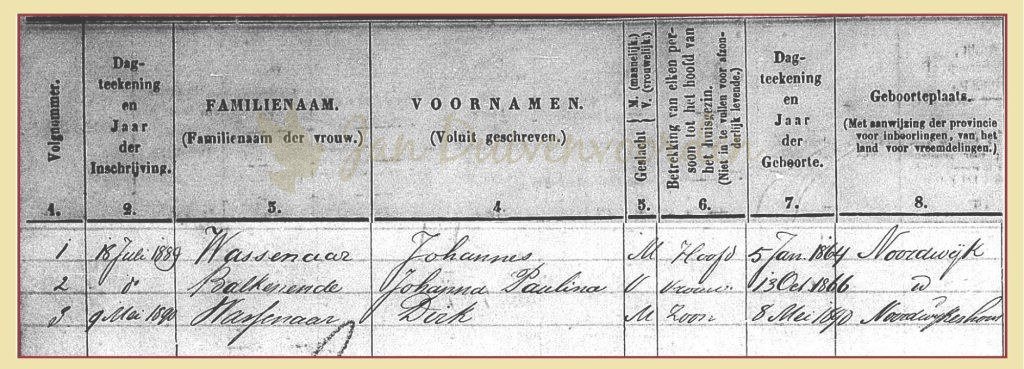 Volgnummer.
Dag-
teekening
en
Jaar
der
Inschrijving.
FAMILIENAAM.
(Familienaam der vrouw.)
VOORNAMEN.
(Voluit geschreven.)
Geslacht M. (mannelijk.) V. (vrouwelijk.)
Betrekking van elken per-
soon tot het hoofd van
het huisgezin.
(Niet in te vullen voor afzon-
derlijk levende.)
Dag-
teekening
en
Jaar
der
Geboorte.
Geboorteplaats.
(Met aanwijzing der provincie
voor inboorlingen, van het
land voor vreemdelingen.)
Jan Duivenvoorden
1. 2. 3. 4. 5. 6. 7. 8.
1 18 Juli 1889 Wassenaar Johannes M Hoofd 5 Jan 1864 Noordwijk
2 d Balkenende Johanna Paulina V vrouw 13 Oct 1866 d
3 9 Mei 1890 Wassenaar Dirk M Zoon 8 Mei 1890 Noordwijkerhout